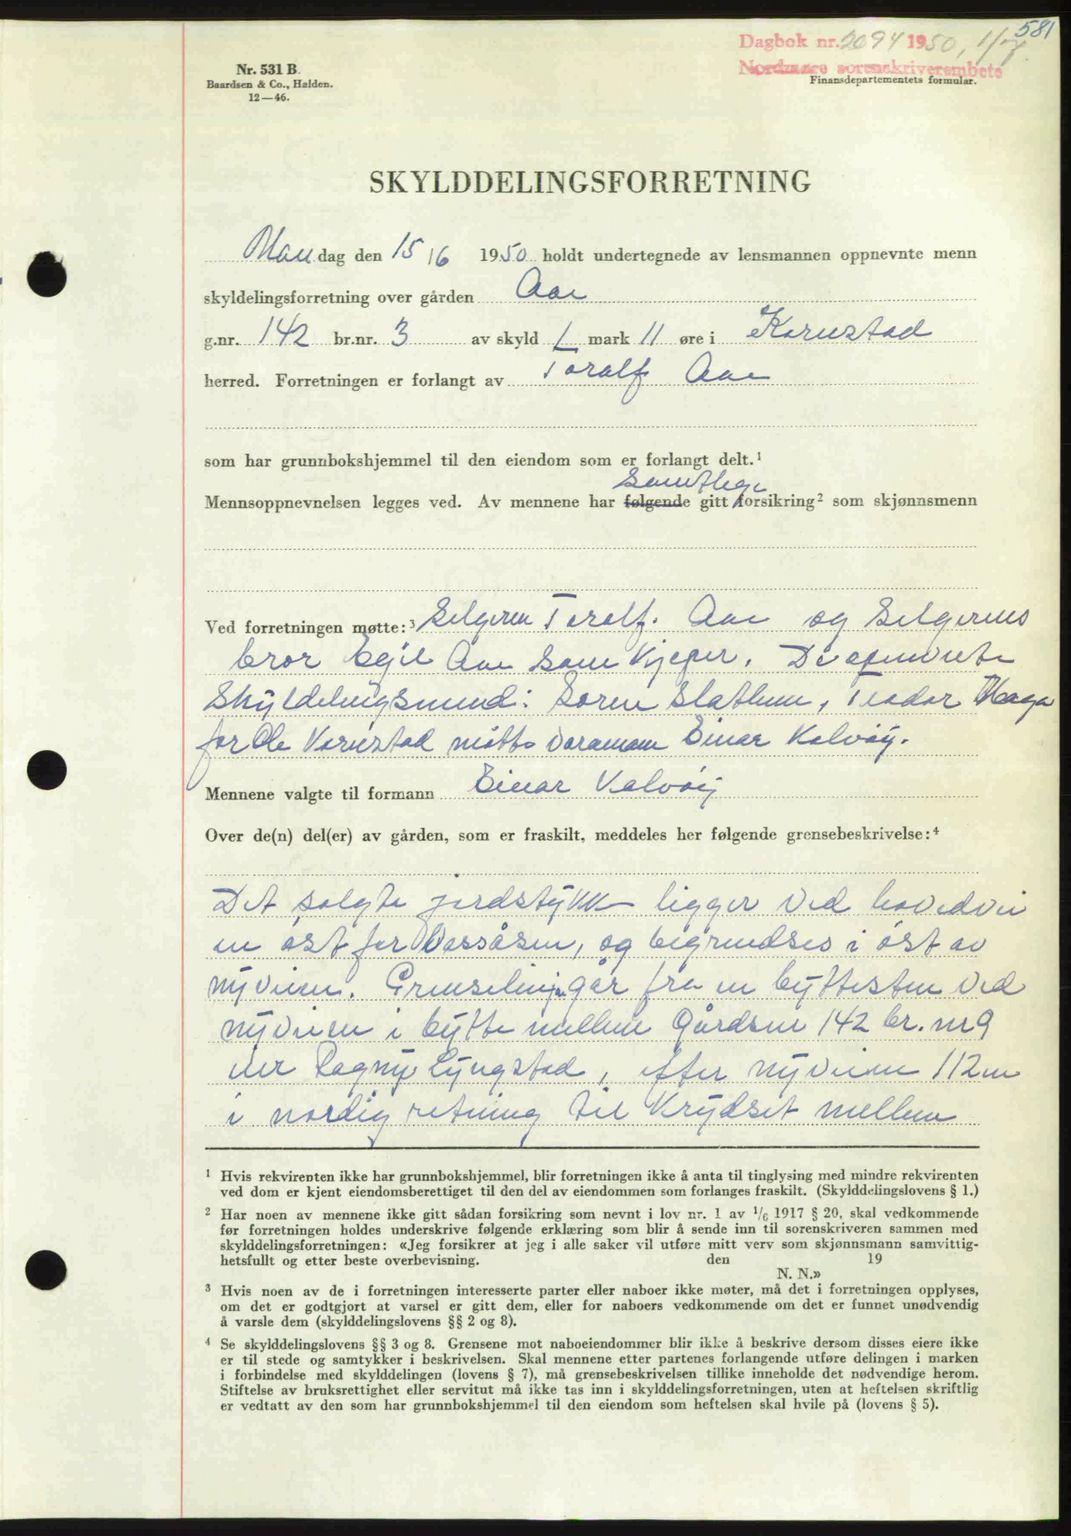 581
Dagbok nr. 2094 1950, 1/7
Nordmøre sorenskriverembete
Nr. 531 B.
Baardsen & Co., Halden.
12—46.
Finansdepartementets formular.
SKYLDDELINGSFORRETNING
Man dag den 15/6 1950 holdt undertegnede av lensmannen oppnevnte menn
skyldelingsforretning over gården Aae
g.nr. 142 br.nr. 3 av skyld 1 mark 11 øre i Kornstad
herred. Forretningen er forlangt av Toralf Aae
som har grunnbokshjemmel til den eiendom som er forlangt delt.¹
Samtlege
Mennsoppnevnelsen legges ved. Av mennene har følgende gitt forsikring² som skjønnsmenn
Ved forretningen møtte:³ Selgeren Toralf. Aae og Selgerens
bror Egil Aae som Kjøper. De opnevnte
Skyldelingsmend: Søren Slatlem, Teodor Haga
for Ole Kornstad møtte varamann Einar Kalvøy.
Mennene valgte til formann Einar Kalvøy
Over de(n) del(er) av gården, som er fraskilt, meddeles her følgende grensebeskrivelse:⁴
Det solgte jordstykk ligger ved hovedvei
en øst for Vassåsen, og begrendses i øst av
nyveien. Grenselinjen går fra en byttesten ved
nyveien i bytte mellem gårdsnr 142 br. nr 9
eier Dagny Lyngstad, efter nyveien 112 m
i nordig retning til Krydset mellem
¹ Hvis rekvirenten ikke har grunnbokshjemmel, blir forretningen ikke å anta til tinglysing med mindre rekvirenten
ved dom er kjent eiendomsberettiget til den del av eiendommen som forlanges fraskilt. (Skylddelingslovens § 1.)
² Har noen av mennene ikke gitt sådan forsikring som nevnt i lov nr. 1 av 1/6 1917 § 20, skal vedkommende
før forretningen holdes underskrive følgende erklæring som blir å sende inn til sorenskriveren sammen med
skylddelingsforretningen: «Jeg forsikrer at jeg i alle saker vil utføre mitt verv som skjønnsmann samvittig-
hetsfullt og etter beste overbevisning. den 19
N. N.»
³ Hvis noen av de i forretningen interesserte parter eller naboer ikke møter, må det i forretningen opplyses,
om det er godtgjort at varsel er gitt dem, eller for naboers vedkommende om det er funnet unødvendig
å varsle dem (skylddelingslovens §§ 2 og 8).
⁴ Se skylddelingslovens §§ 3 og 8. Grensene mot naboeiendommer blir ikke å beskrive dersom disses eiere ikke
er til stede og samtykker i beskrivelsen. Skal mennene etter partenes forlangende utføre delingen i marken
i forbindelse med skylddelingen (lovens § 7), må grensebeskrivelsen tillike inneholde det nødvendige herom.
Stiftelse av bruksrettighet eller servitut må ikke tas inn i skylddelingsforretningen, uten at heftelsen skriftlig
er vedtatt av den som har grunnbokshjemmel til den eiendom som heftelsen skal hvile på (lovens § 5).